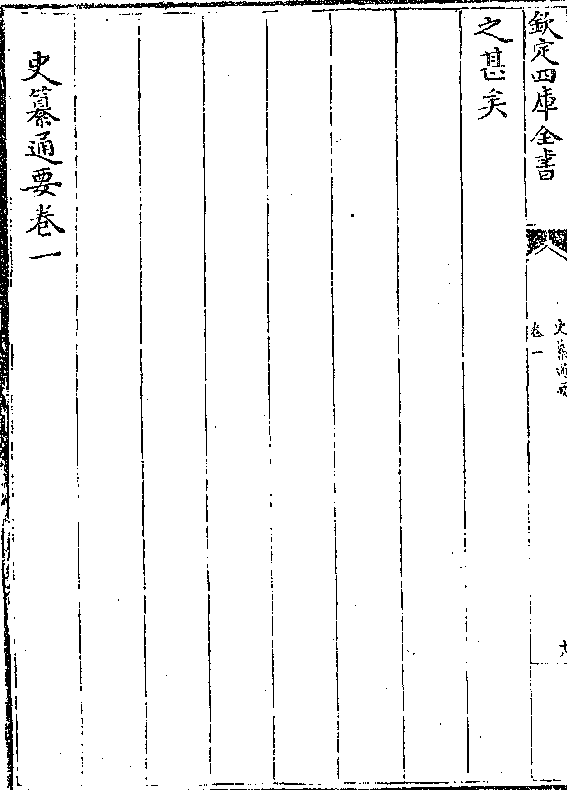 欽定四庫全書
史纂通要
卷一
之甚矣
史纂通要卷一